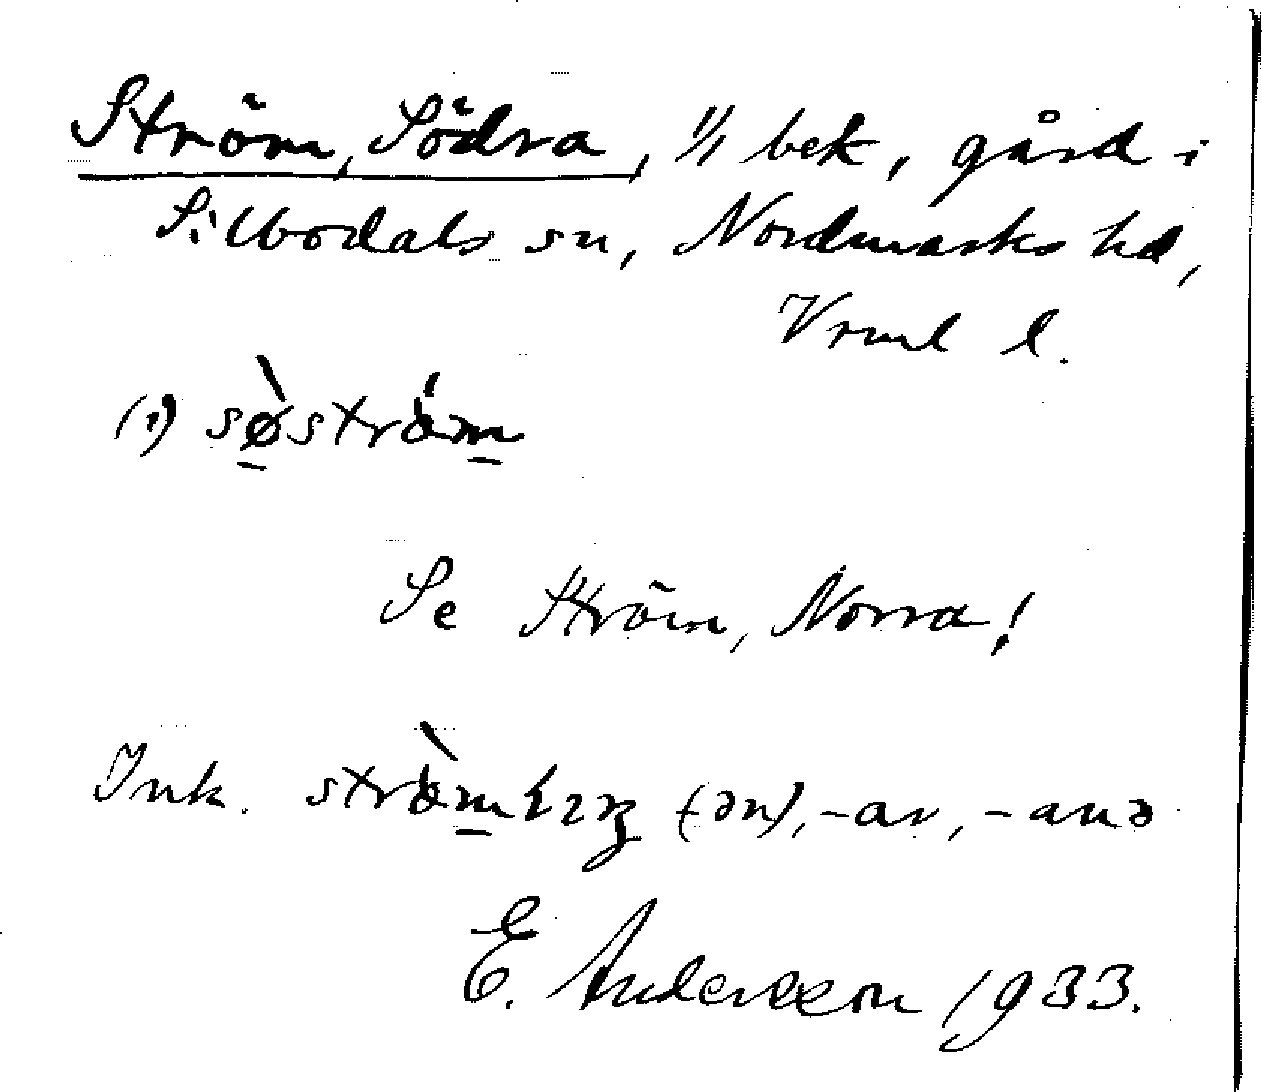 Ström, Södra, 1/1 bek, gård i
Silbodals sn, Nordmarks hd,
Vrml l.
(1) sø̀ström
Se Ström, Norra!
Ink. (ən), -ar, -anə
E. Andersson 1933.